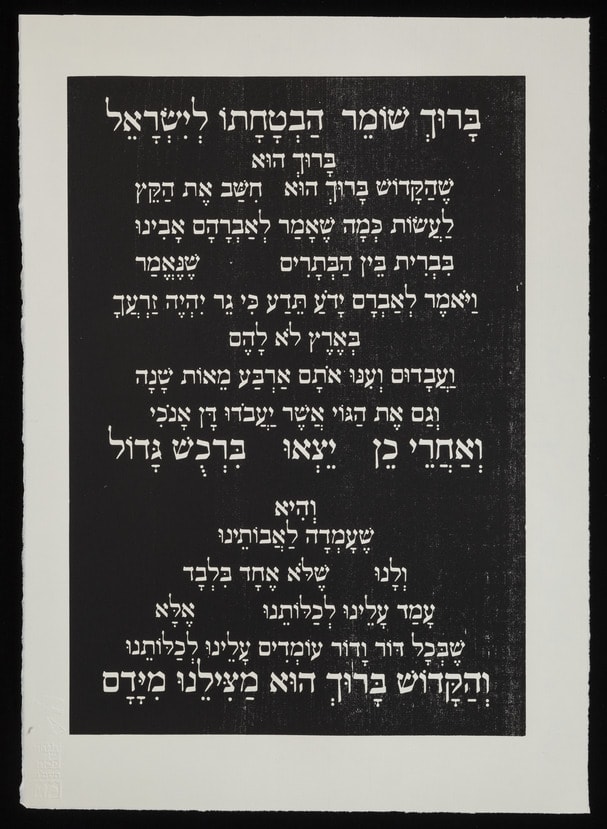 בָּרוּךְ שׁוֹמֵר הַבְטָחָתוֹ לְיִשְׂרָאֵל
בָּרוּךְ הוּא
שֶׁהַקָּדוֹשׁ בָּרוּךְ הוּא חִשַּׁב אֶת הַקֵּץ
לַעֲשׂוֹת כְּמָה שֶׁאָמַר לְאַבְרָהָם אָבִינוּ
בִּבְרִית בֵּין הַבְּתָרִים שֶׁנֶּאֱמַר
וַיֹּאמֶר לְאַבְרָם יָדֹעַ תֵּדַע כִּי גֵר יִהְיֶה זַרְעֲךָ
בְּאֶרֶץ לֹא לָהֶם
וַעֲבָדוּם וְעִנּוּ אֹתָם אַרְבַּע מֵאוֹת שָׁנָה
וְגַם אֶת הַגּוֹי אֲשֶׁר יַעֲבֹדוּ דָּן אָנֹכִי
וְאַחֲרֵי כֵן יֵצְאוּ בִּרְכֻשׁ גָּדוֹל
וְהִיא
שֶׁעָמְדָה לַאֲבוֹתֵינוּ
וְלָנוּ שֶׁלֹּא אֶחָד בִּלְבָד
עָמַד עָלֵינוּ לְכַלּוֹתֵנוּ אֶלָּא
שֶׁבְּכָל דּוֹר וָדוֹר עוֹמְדִים עָלֵינוּ לְכַלּוֹתֵנוּ
וְהַקָּדוֹשׁ בָּרוּךְ הוּא מַצִּילֵנוּ מִיָּדָם